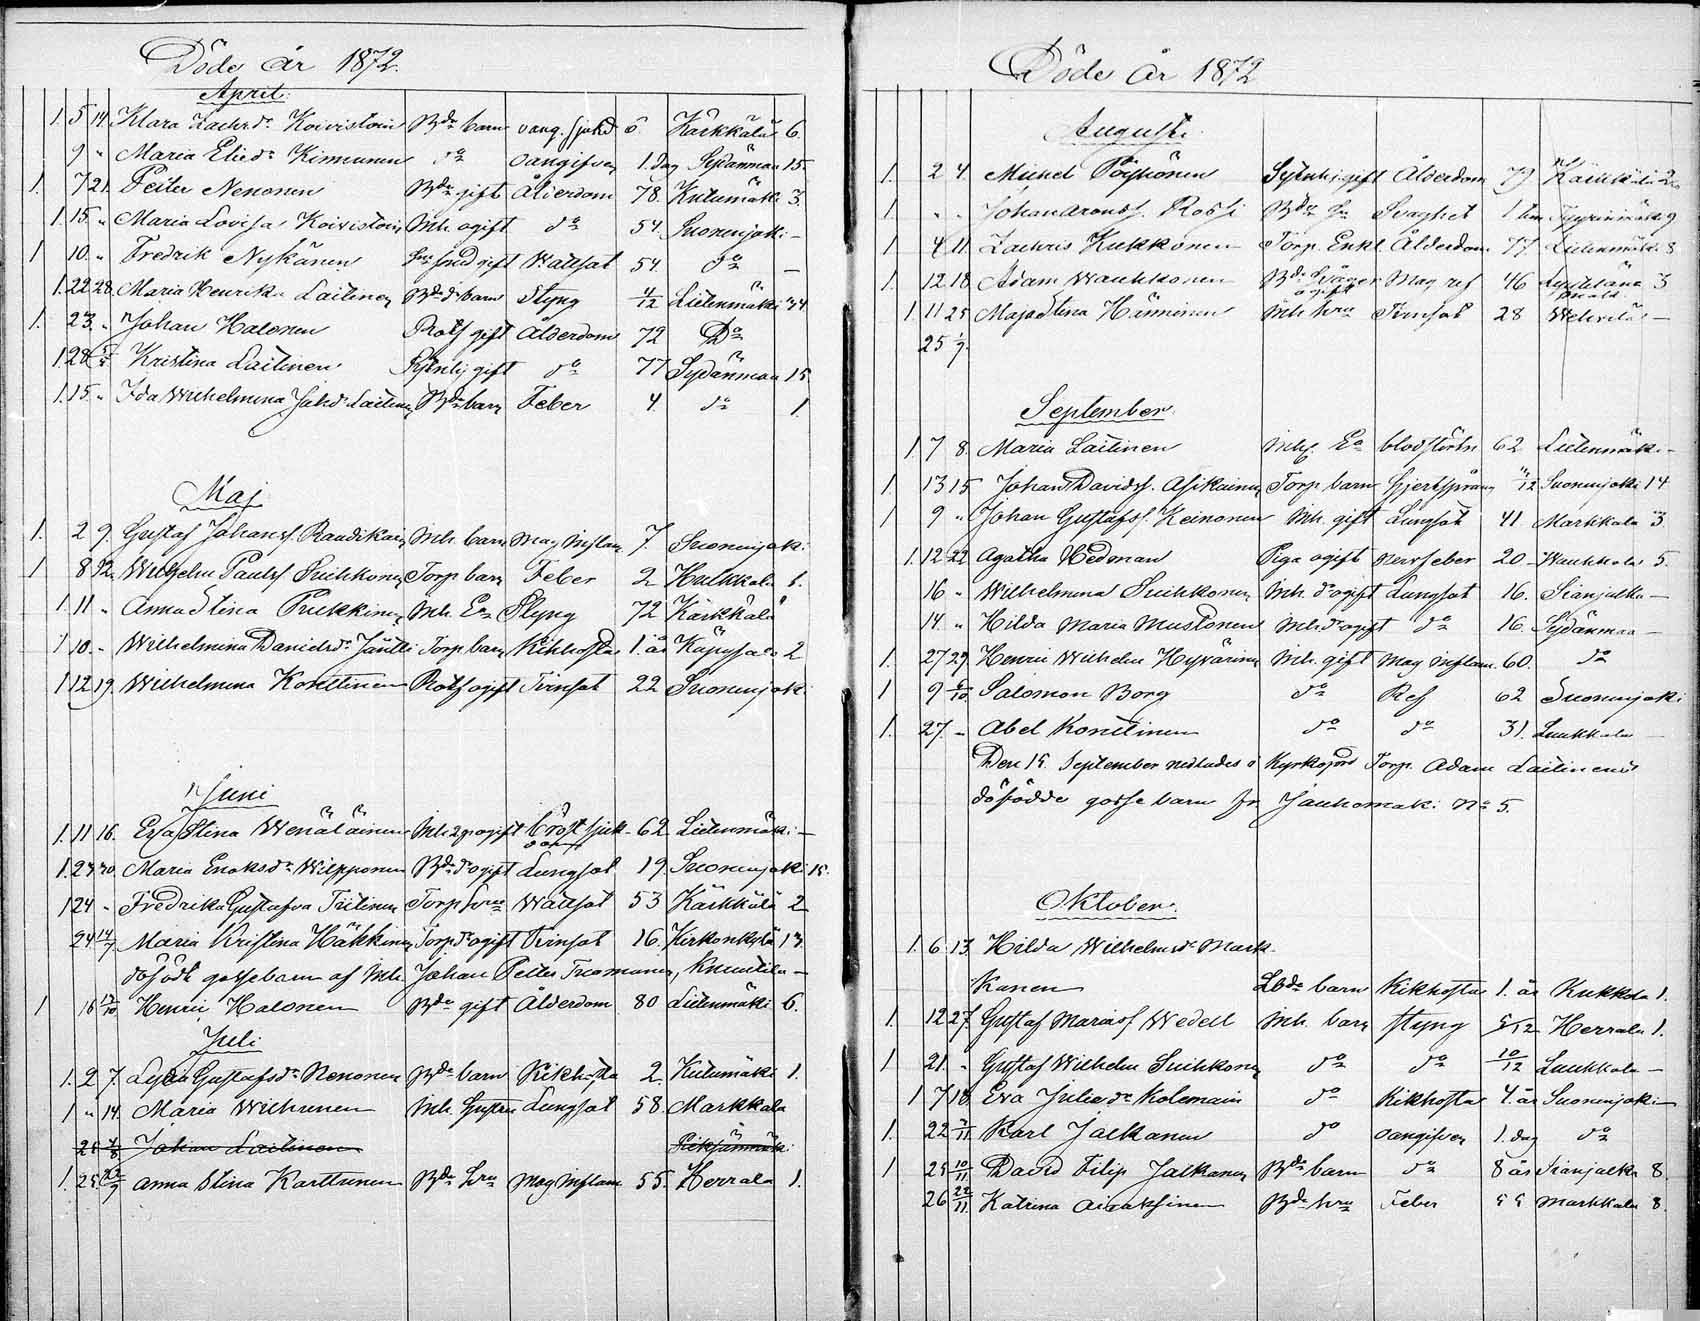 Döde år 1872.
April.
1. 5 14. Klara Zachrds Koivistoin Bde barn oang. sjukd 6. Kärkkälä 6.
9 " Maria Elieds Kinnunen do oangifven 1. dag Sydänmaa 15.
1. 7 21. Peter Nenonen Bde gift Ålderdom 78. Kutumäki 3.
1. 15. " Maria Lovisa Koivistoin Inh. ogift do 54. Suonenjoki –
1 10. " Fredrik Nykänen gift Wattsot 54. do –
1. 22 28. Maria Henrika Laitinen Bde barn Styng 4/12 Lietenmäki
1. 23. " Johan Halonen Rotf gift Ålderdom 72 Do
1. 28 Kristina Laitinen gift do 77 Sydänmaa 15
1. 15. " Ida Wilhelmina Johd. Laitinen Bde barn Feber 4. do 1
Maj
1. 2 9. Gustaf Johansf. Raudikain Inh. barn Mag inflam 7. Suonenjoki
1 8 12. Wilhelm Paulsf Suihkonen Torp barn Feber 2 Hulkkola 1.
1. 11 " Anna Stina Pukkinen Inh. Ea Styng 72 Kärkkälä
1 10. " Wilhelmina Danielsdr Jäntti Torp barn Kikhosta 1. år 2
1 12 19. Wilhelmina Konttinen Rotf ogift Tvinsot 22 Suonenjoki
Juni
1. 11 16. Eva Stina Wenäläinen Inh. ogift bröst sjuk 62 Lietenmäki –
1. 23 30. Maria Enoksdr Wilpponen Bde dr ogift Lungsot 19 Suonenjoki 15.
1 24 " Fredrika Gustafva Tiitinen Torp hru Wattsot 53 Kärkkälä 2
24 14/7 Maria Kristina Häkkinen Torp dr ogift Tvinsot 16. Kirkonkylä 13.
dödfödt gossebarn af Inh. Johan Petter Tuomainen, –
1 16 13/10 Henric Halonen Bde gift Ålderdom 80 Lietenmäki 6.
Juli
1. 2 7. Gustafsdr Nenonen Bde barn Kikhosta 2. Kutumäki 1.
1 " 14. Maria Wihunen Inh. hustru Lungsot 58. Markkala
25 4/8 Johan Laitinen
1. 25 22/9 Anna Stina Karttunen Bde hru Mag inflam 55. Herrala 1.
Döde år 1872
Augusti.
1. 2 4. Michel Pöyhönen gift Ålderdom 79 Kärkkälä
1 " " Johan Aronsf. Rossi Bde Svaghet 1 9
1 4 11. Zachris Kukkonen Torp. Enkl Ålderdom 77. Lietenmäki 8
1 12 18. Adam Waukkonen Bde Svåger ogift Mag ref 46 3
1. 11 25 Maja Stina Hänninen Inh hru Tvinsot 28 –
25 1/9.
September.
1. 7 8. Maria Laitinen Inh. Ea blodstörtn 62 Lietenmäki –
1 13 15 Johan Davidsf. Asikainen Torp barn 11/12 Suonenjoki 14
1 9 " Johan Gustafsf. Keinonen Inh. gift Lungsot 41 Markkala 3
1. 12 22 Agatha Hedman Piga ogift Nervfeber 20 5.
16 " Wilhelmina Suihkonen Inh. dr ogift Lungsot 16. Sianjalka –
14. " Hilda Maria Mustonen Inh. dr ogift do 16. Sydänmaa –
1. 27 29. Henric Wilhelm Hyvärinen Inh. gift Mag inflam. 60. do
1 9 6/10 Salomon Borg do Ref 62 Suonenjoki
1. 27. " Abel Konttinen do do 31. Luukkola –
Den 15. September nedlades i Kyrkojord Torp. Adam Laitinens
dödfödde gosse barn fr. Jauhomäki No 5.
Oktober.
1. 6 13. Hilda Wilhelmsdr Mark-
kanen Lbde barn Kikhosta 1. år Kukkola 1.
1. 12 27. Gustaf Mariasf Wedell Inh. barn styng 5/12 Herrala 1.
1 21. " Gustaf Wilhelm Suihkonen do do 10/12 Luukkola –
1 7 18. Eva Juliadr Kolemain do Kikhosta 4. år Suonenjoki –
1. 22 Karl Jalkanen do oangifven 1. dag do
1 25 10/11 David Filip Jalkanen Bde barn do 8 år Sianjalka 8.
26 22/11 Katrina Airaksinen Bde hru Feber 55 Markkala 8.